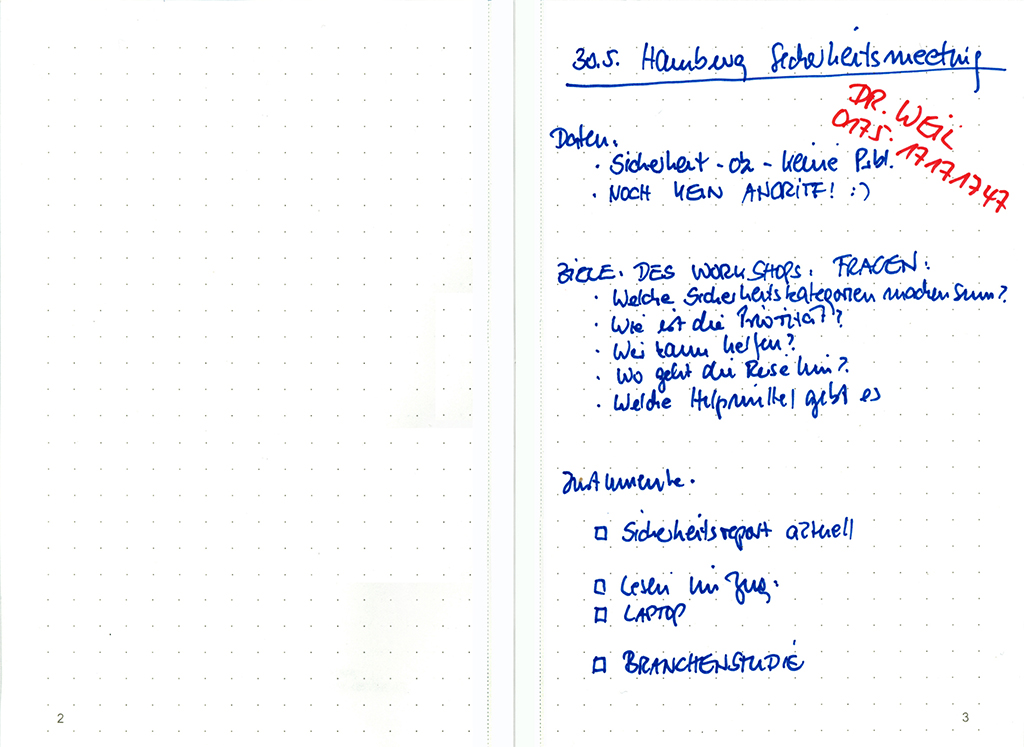 30.5. Hamburg Sicherheitsmeeting
DR. WEIL
0175. 17171747
Daten.
· Sicherheit - ok - keine Publ.
· NOCH KEIN ANGRIFF! :)
ZIELE. DES WORKSHOPS. FRAGEN:
· Welche Sicherheitskategorien machen Sinn?
· Wie ist die Priorität?
· Wer kann helfen?
· Wo geht die Reise hin?
· Welche Hilfsmittel gibt es
□ Sicherheitsreport aktuell
□ Lesen im Zug.
□ LAPTOP
□ BRANCHENSTUDIE
2
3